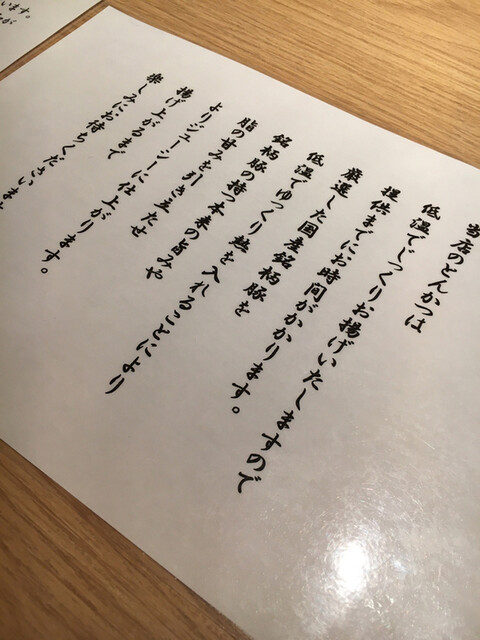 当店のとんかつは
低温でじっくりお揚げいたしますので
提供までにお時間がかかります。
厳選した国産銘柄豚を
低温でゆっくり熱を入れることにより
銘柄豚の持つ本来の旨みや
脂の甘みを引き立たせ
よりジューシーに仕上がります。
揚げ上がるまで
楽しみにお待ちくださいませ
います。